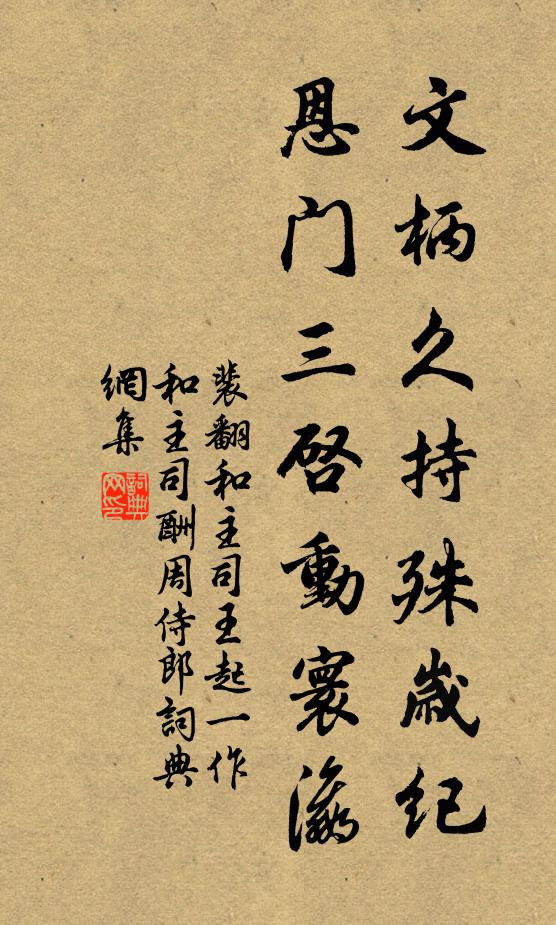 文柄久持殊歲紀
恩门三啓動寰瀛
裴翻和主司王起一作
和主司酬周侍郎詞典
網集
詞典
网印